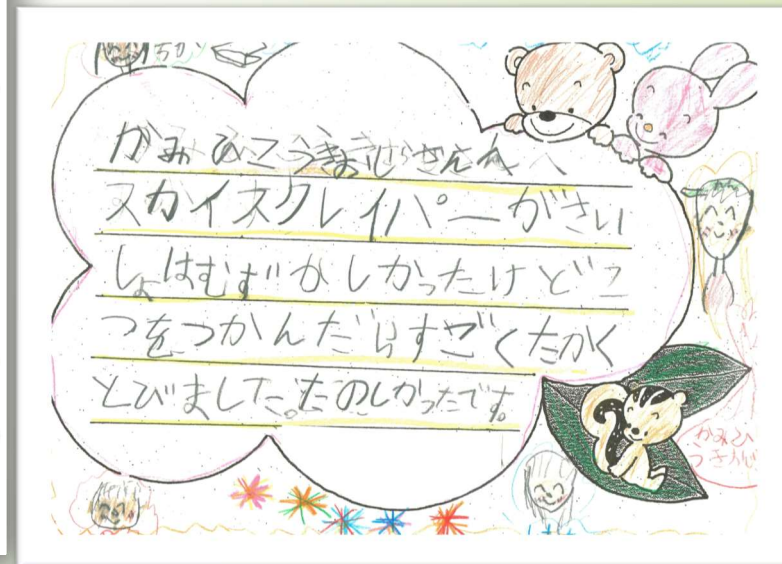 かみひこうきおじさんへ
スカイスクレイパーがさい
しょはむずかしかったけどこ
つをつかんだらすごくたかく
とびました。たのしかったです。
かみひ